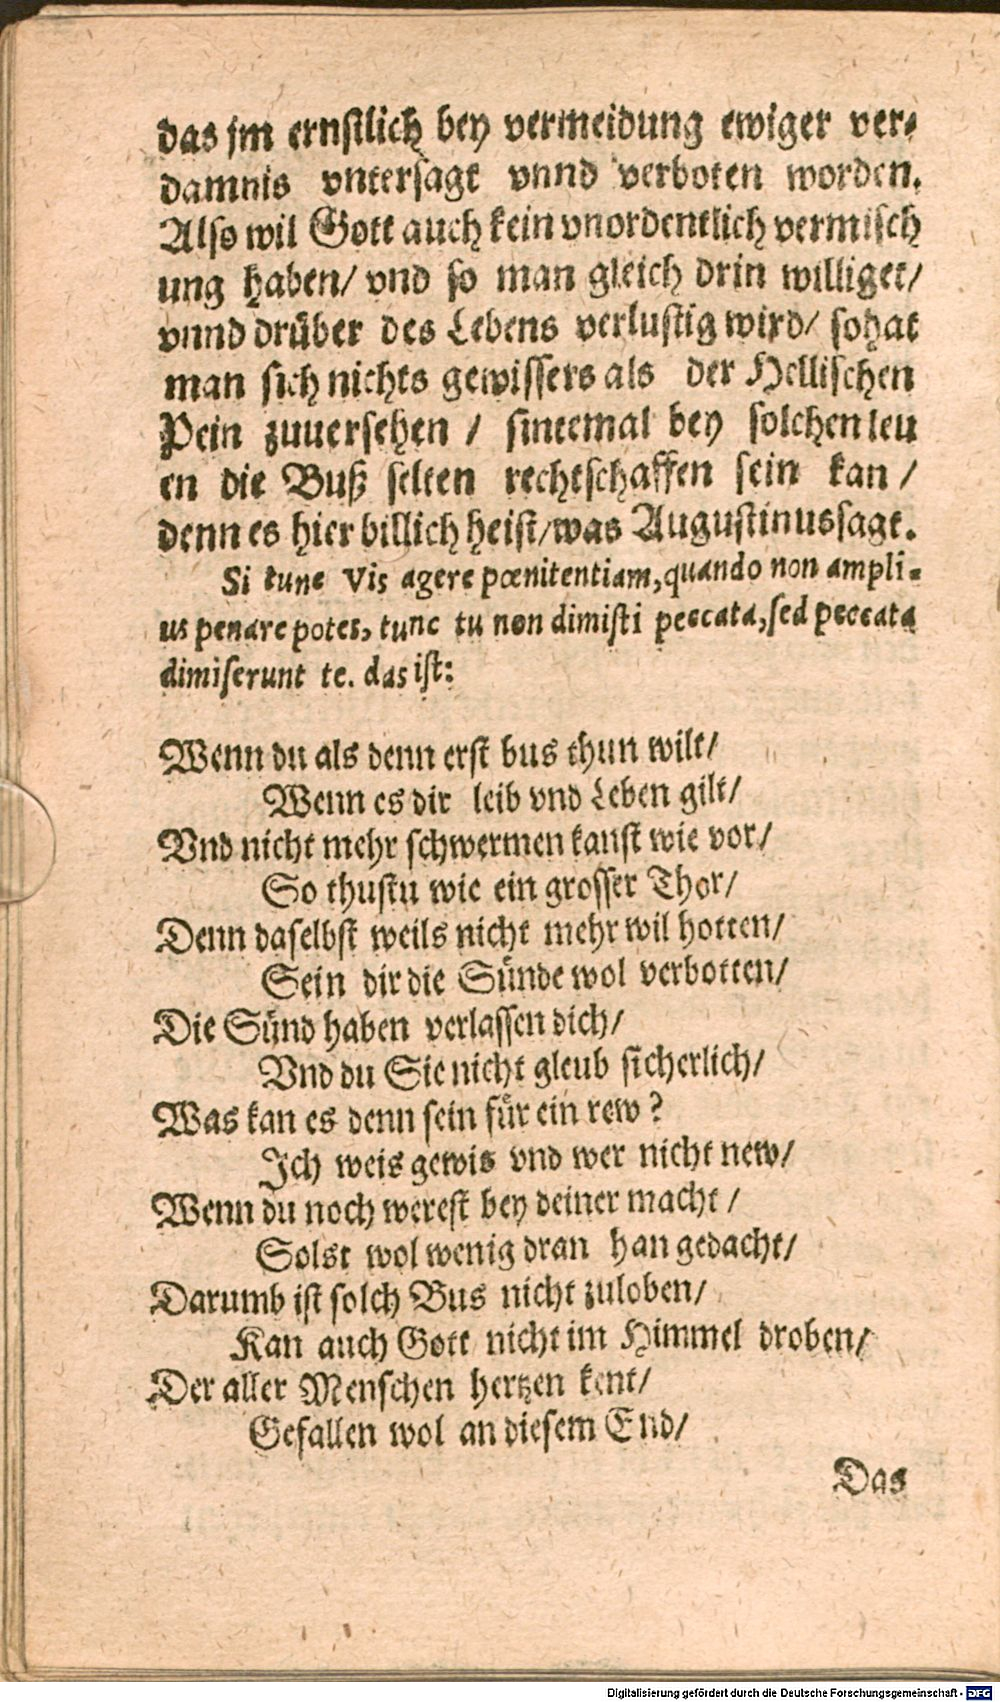 das jm ernſtlich bey vermeidung ewiger ver⸗
damnis vnterſagt vnnd verboten worden.
Alſo wil Gott auch kein vnordentlich vermiſch
ung haben/ vnd ſo man gleich drin williget/
vnnd drüber des Lebens verluſtig wird/ ſo hat
man ſich nichts gewiſſers als der Helliſchen
Pein zuuerſehen / ſintemal bey ſolchen leu
en die Buß ſelten rechtſchaffen ſein kan /
denn es hier billich heiſt/was Auguſtinus ſagt.
Si tunc Vis agere pœnitentiam,quando non ampli-
us penare potes, tunc tu non dimiſti peccata,ſed peccata
dimiſerunt te. das iſt:
Wenn du als denn erſt bus thun wilt/
Wenn es dir leib vnd Leben gilt/
Vnd nicht mehr ſchwermen kanſt wie vor/
So thuſtu wie ein groſſer Thor/
Denn daſelbſt weils nicht mehr wil hotten/
Sein dir die Sünde wol verbotten/
Die Sünd haben verlaſſen dich/
Vnd du Sie nicht gleub ſicherlich/
Was kan es denn ſein für ein rew?
Ich weis gewis vnd wer nicht new/
Wenn du noch wereſt bey deiner macht /
Solst wol wenig dran han gedacht/
Darumb iſt ſolch Bus nicht zuloben/
Kan auch Gott nicht im Himmel droben/
Der aller Menſchen hertzen kent/
Gefallen wol an dieſem End/
Das
Digitalisierung gefördert durch die Deutsche Forschungsgemeinschaft - DFG